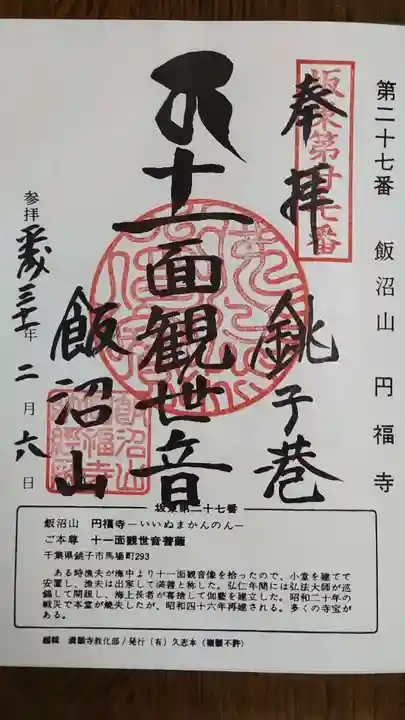 第二十七番　飯沼山　円福寺
坂東第廿七番
奉拝
銚子巷
十一面観世音
飯沼山
参拝 平成三十一年 二月 六日
坂東第二十七番
飯沼山　円福寺ーいいぬまかんのんー
ご本尊　十一面観世音菩薩
千葉県銚子市馬場町293
ある時漁夫が海中より十一面観音像を拾ったので、小堂を建てて
安置し、漁夫は出家して満善と称した。弘仁年間には弘法大師が巡
錫して開眼し、海上長者が喜捨して伽藍を建立した。昭和二十年の
戦災で本堂が焼失したが、昭和四十六年再建される。多くの寺宝が
ある。
編輯　満願寺教化部／発行（有）久志本（複製不許）